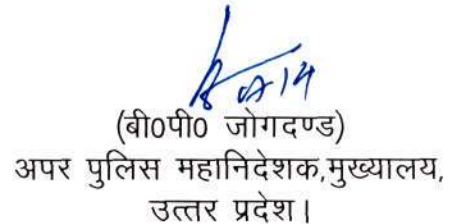 (बी0पी0 जोगदण्ड)
अपर पुलिस महानिदेशक,मुख्यालय,
उत्तर प्रदेश।